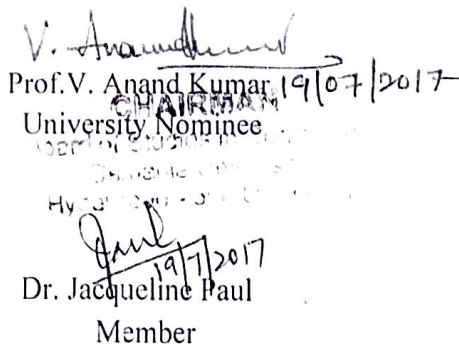 V. Anand Kumar
Prof.V. Anand Kumar 19/07/2017
CHAIRMAN
University Nominee
19/7/2017
Dr. Jacqueline Paul
Member